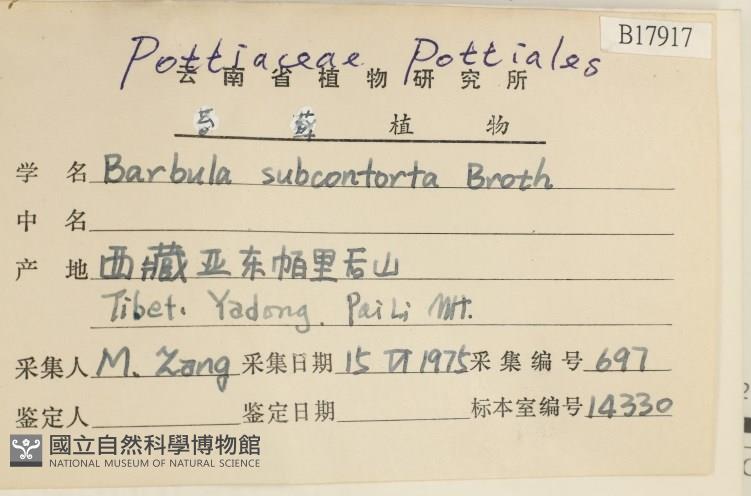 B17917
Pottiaceae Pottiales
云南省植物研究所
苔 藓 植 物
学 名 Barbula subcontorta Broth
中 名
产 地 西藏亚东帕里后山
Tibet. Yadong. PaiLi MT.
采集人 M. Zang 采集日期 15 VI 1975 采集编号 697
鉴定人 鉴定日期 标本室编号 14330
國立自然科學博物館
NATIONAL MUSEUM OF NATURAL SCIENCE